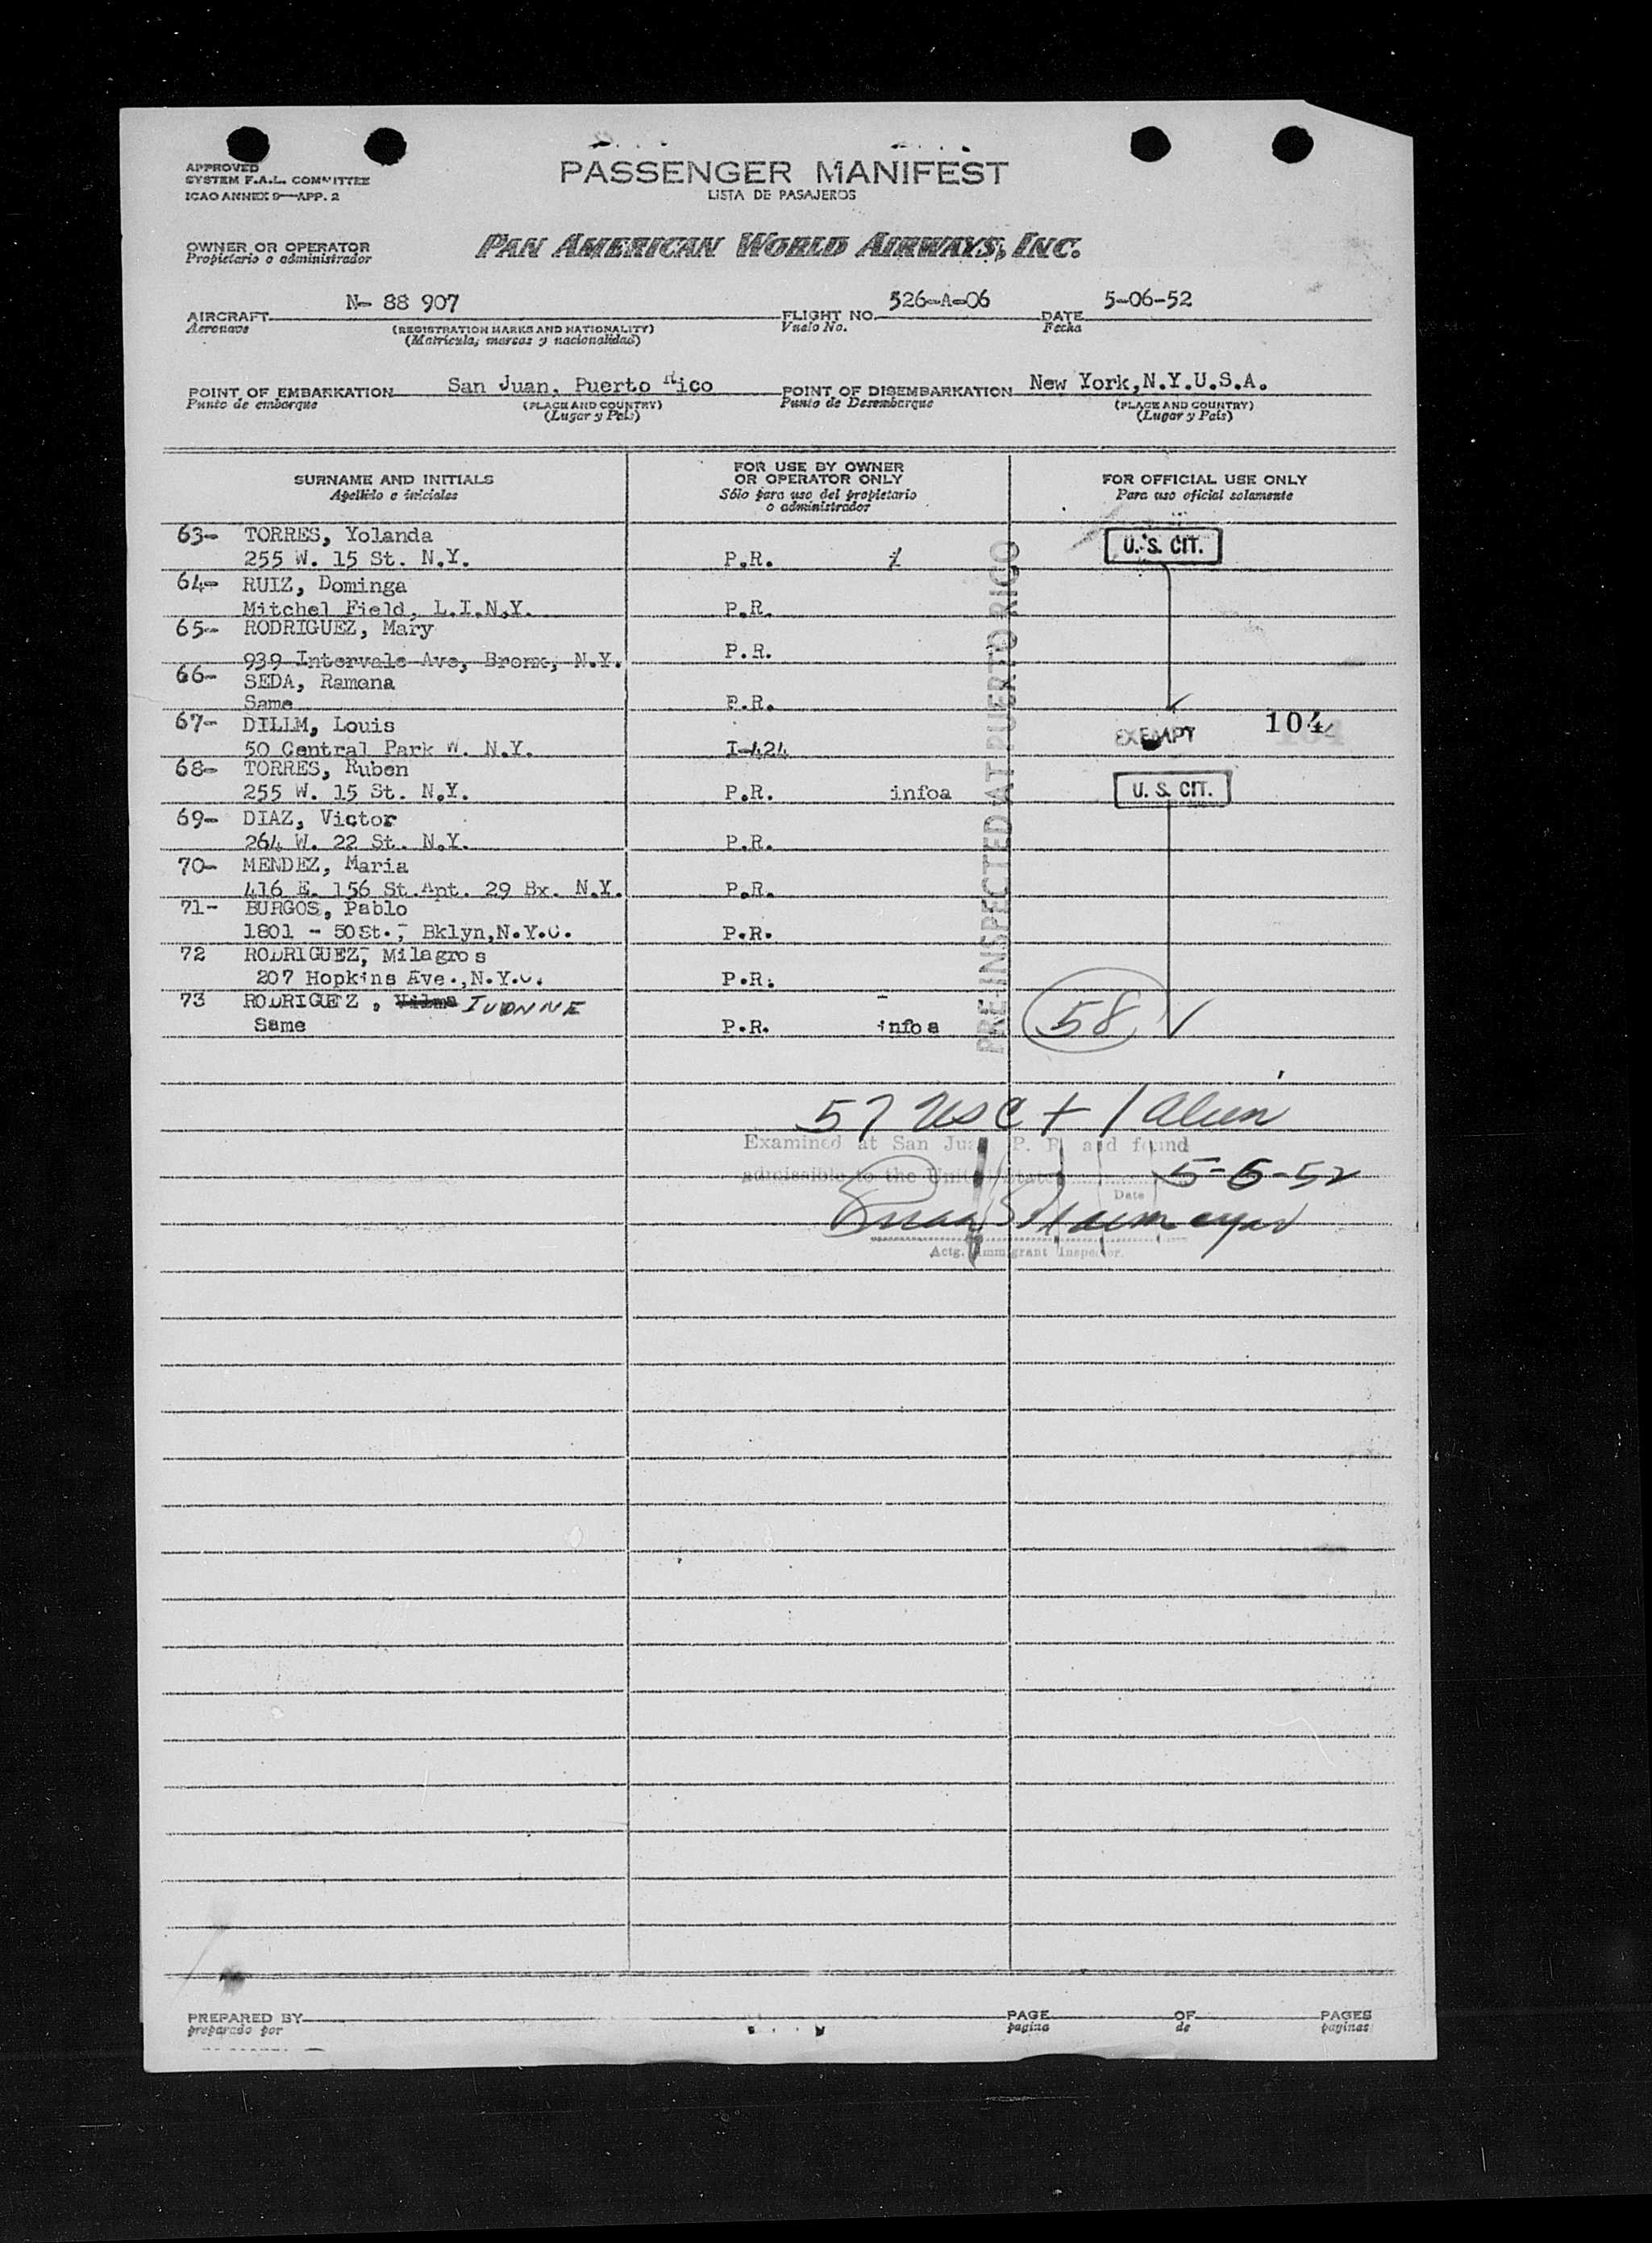 APPROVED
SYSTEM F.A.L. COMMITTEE
ICAO ANNEX 9—APP. 2
PASSENGER MANIFEST
LISTA DE PASAJEROS
OWNER OR OPERATOR
Propietario o administrador
PAN AMERICAN WORLD AIRWAYS, INC.
AIRCRAFT N- 88 907 FLIGHT NO. 526-A-06 DATE 5-06-52
Aeronave (REGISTRATION MARKS AND NATIONALITY) Vuelo No. Fecha
(Matricula, marcas y nacionalidad)
POINT OF EMBARKATION San Juan, Puerto Rico POINT OF DISEMBARKATION New York,N.Y.U.S.A.
Punto de embarque (PLACE AND COUNTRY) Punto de Desembarque (PLACE AND COUNTRY)
(Lugar y País) (Lugar y País)
SURNAME AND INITIALS
Apellido e iniciales
FOR USE BY OWNER
OR OPERATOR ONLY
Sólo para uso del propietario
o administrador
FOR OFFICIAL USE ONLY
Para uso oficial solamente
63- TORRES, Yolanda
255 W. 15 St. N.Y. P.R. U. S. CIT.
64- RUIZ, Dominga
Mitchel Field, L.I.N.Y. P.R.
65- RODRIGUEZ, Mary
939 Intervale Ave, Bronx, N.Y. P.R.
66- SEDA, Ramona
Same P.R.
67- DILLM, Louis
50 Central Park W. N.Y. I-424 EXEMPT 104
68- TORRES, Ruben
255 W. 15 St. N.Y. P.R. infoa U. S. CIT.
69- DIAZ, Victor
264 W. 22 St. N.Y. P.R.
70- MENDEZ, Maria
416 E. 156 St.Apt. 29 Bx. N.Y. P.R.
71- BURGOS, Pablo
1801 - 50St., Bklyn,N.Y.C. P.R.
72 RODRIGUEZ, Milagros
207 Hopkins Ave.,N.Y.C. P.R.
73 RODRIGUEZ, Vilma IVONNE
Same P.R. infoa 58
PRE-INSPECTED AT PUERTO RICO
57 USC + 1 alien
Examined at San Juan P. R. and found
admissible to the United States 5-6-52
Date
Actg. Immigrant Inspector.
PREPARED BY PAGE OF PAGES
preparado por pagina de paginas